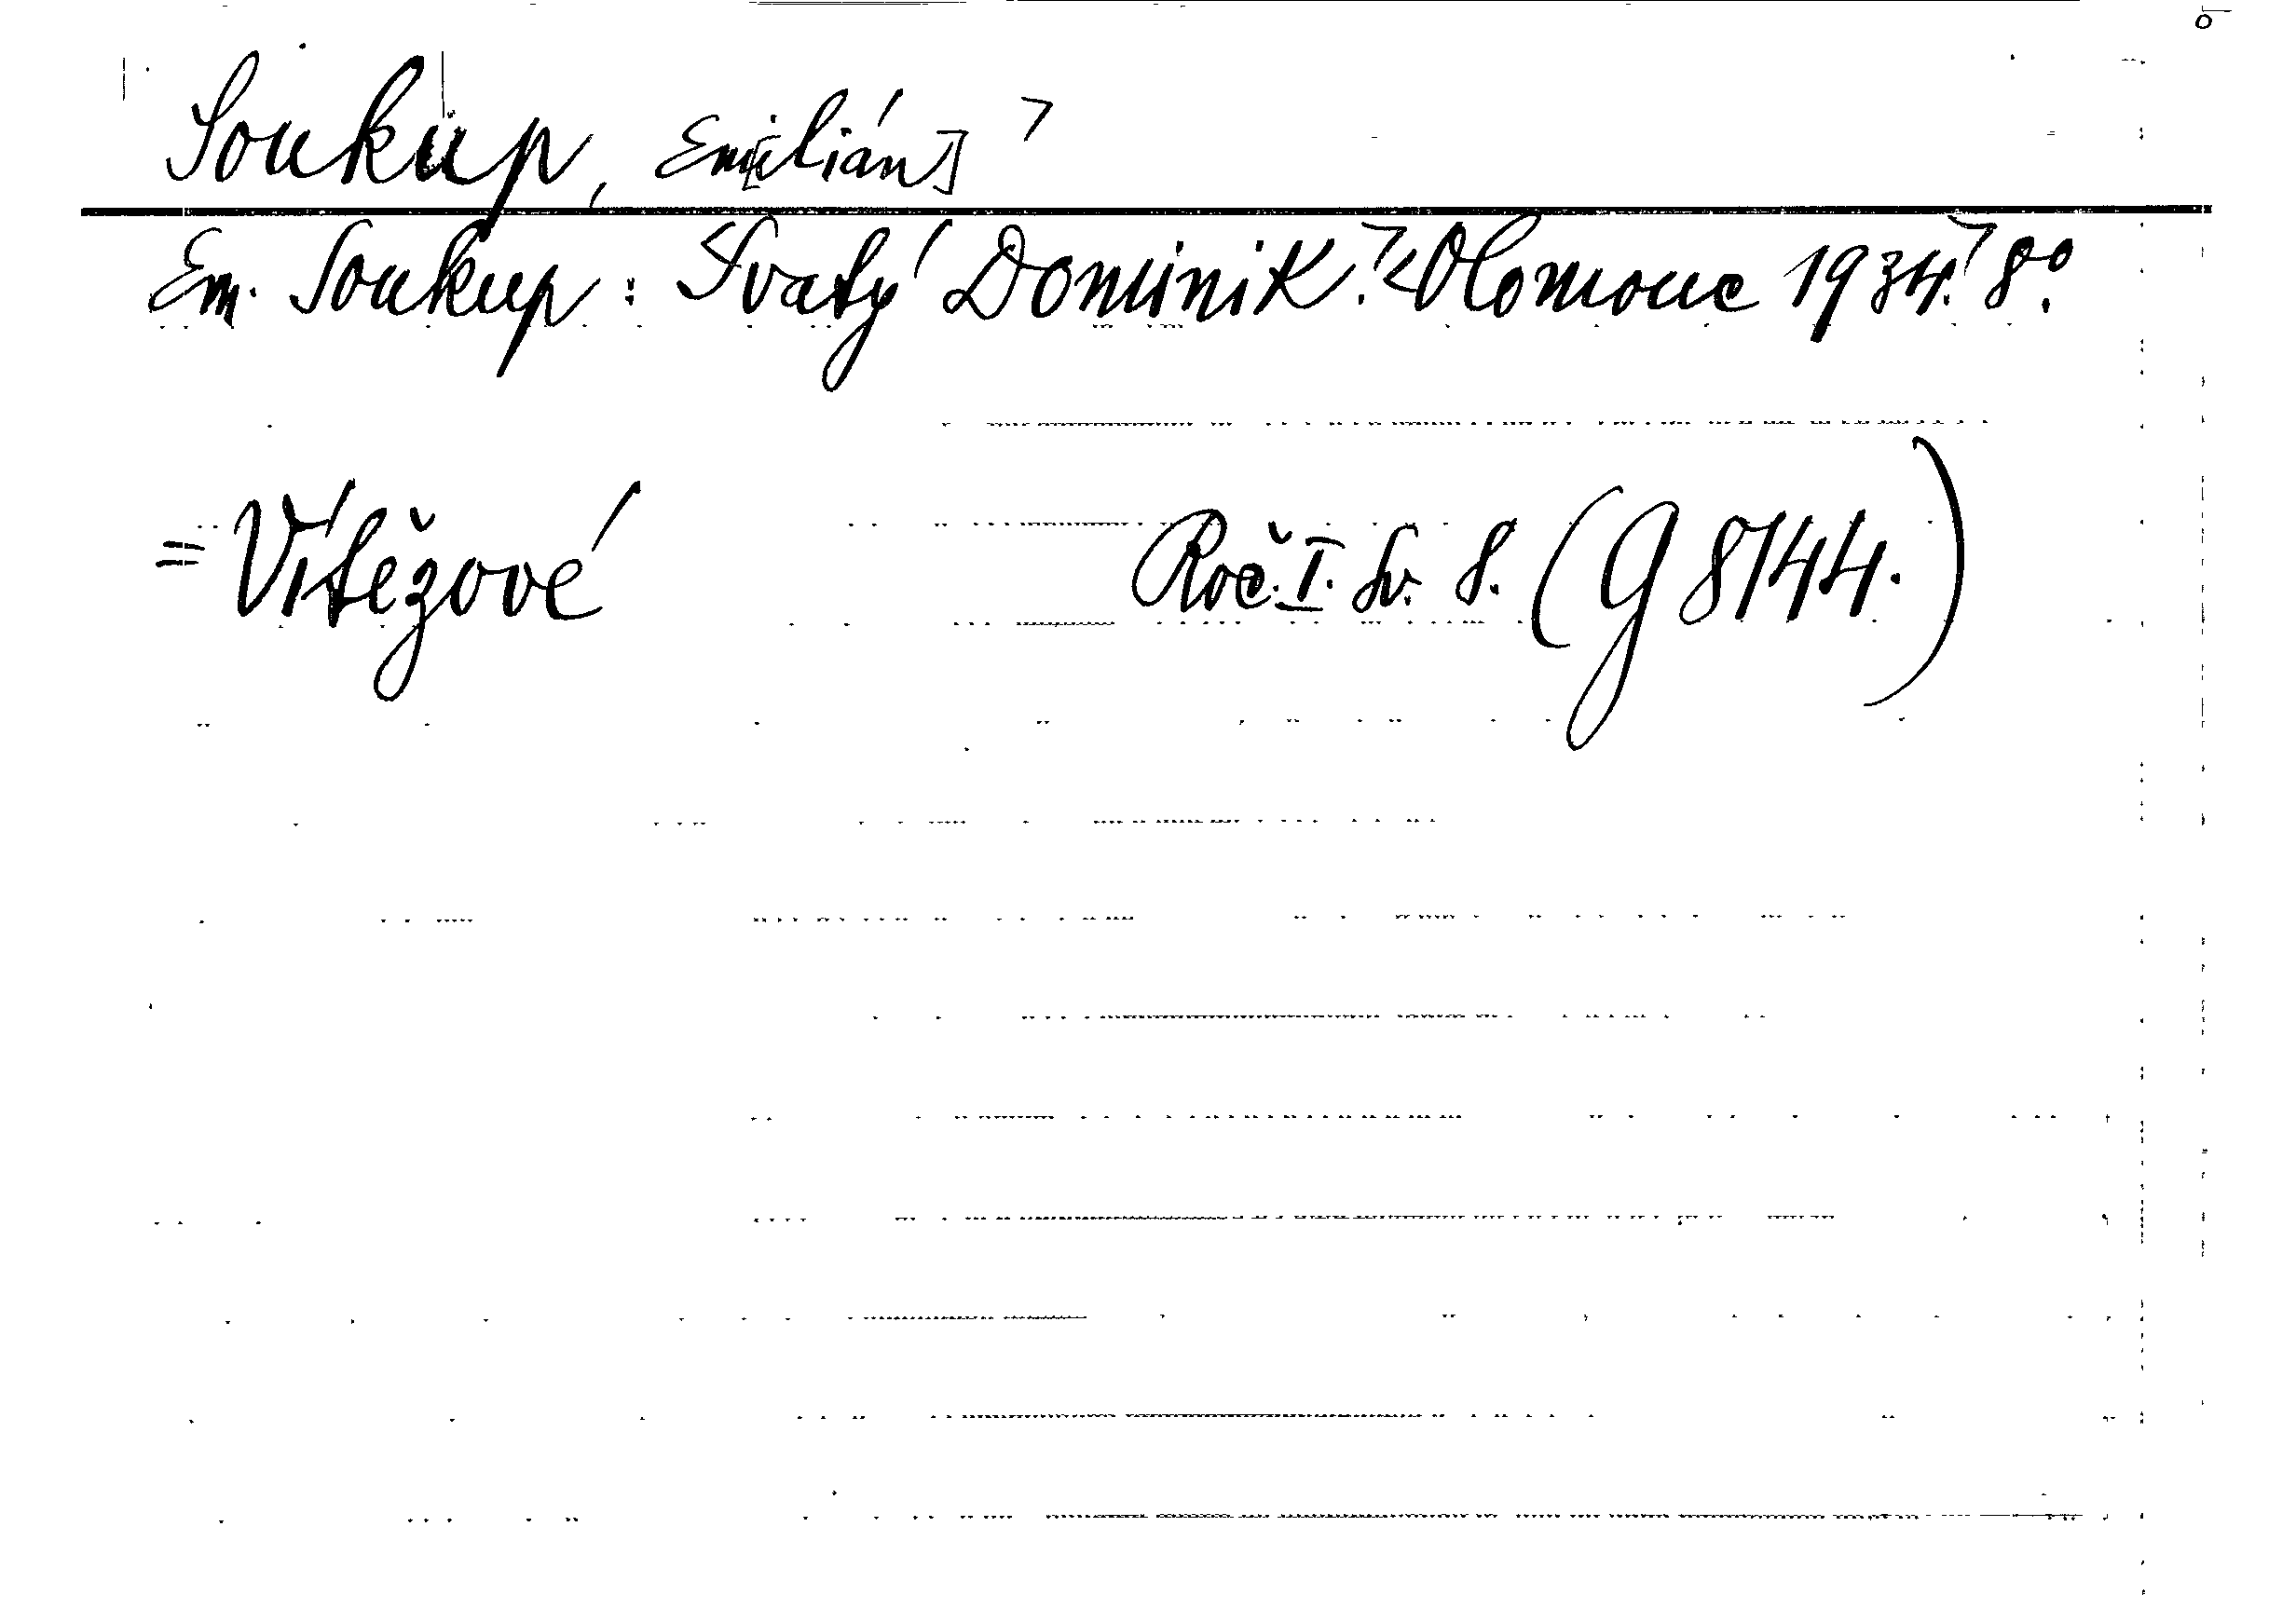 Soukup, Em[ilián] >
Em. Soukup: <Svatý Dominik.> <Olomouc 1934.> 8°.
= Vítězové Roč. I. Sv. 8. (G 8144.)